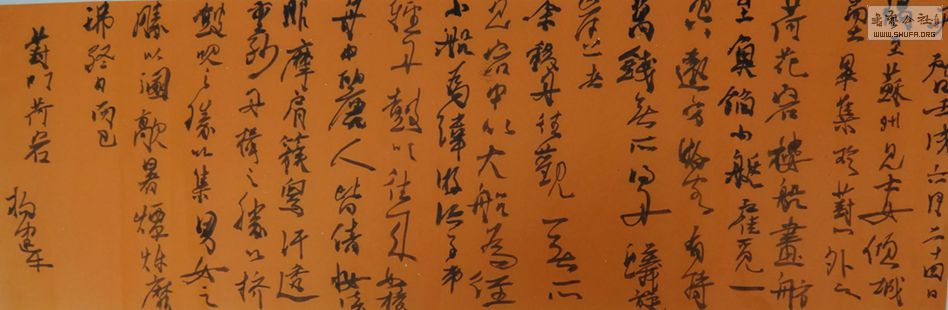 壬戌六月二十四日
至蘇州見士女傾城
而出畢集於葑門外之
荷花宕樓船畫舫
至魚艖小艇雇覓一
空遠方游客有持
數萬錢無所得舟蟻旋
岸上者
余移舟往觀一無所
見宕中以大船為經
小船為緯游冶子弟
輕舟鼓吹往來如梭
舟中麗人皆倩妝淡
服摩肩簇舄汗透
重紗舟楫之勝以擠
鼓吹之勝以集男女之
勝以溷歊暑燀爍靡
沸終日而已
葑門荷宕
书艺公社
WWW.SHUFA.ORG